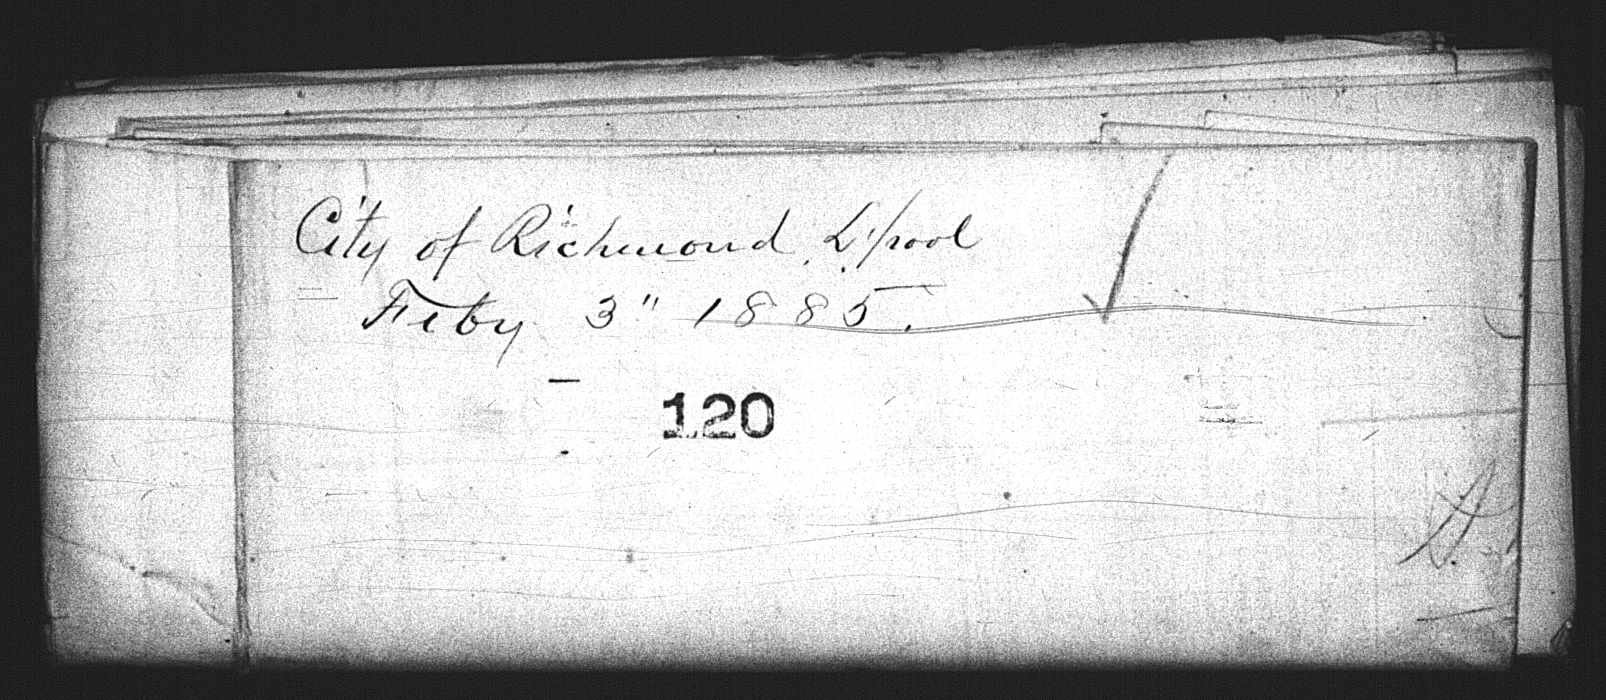 City of Richmond L'pool
Feby 3" 1885.
120